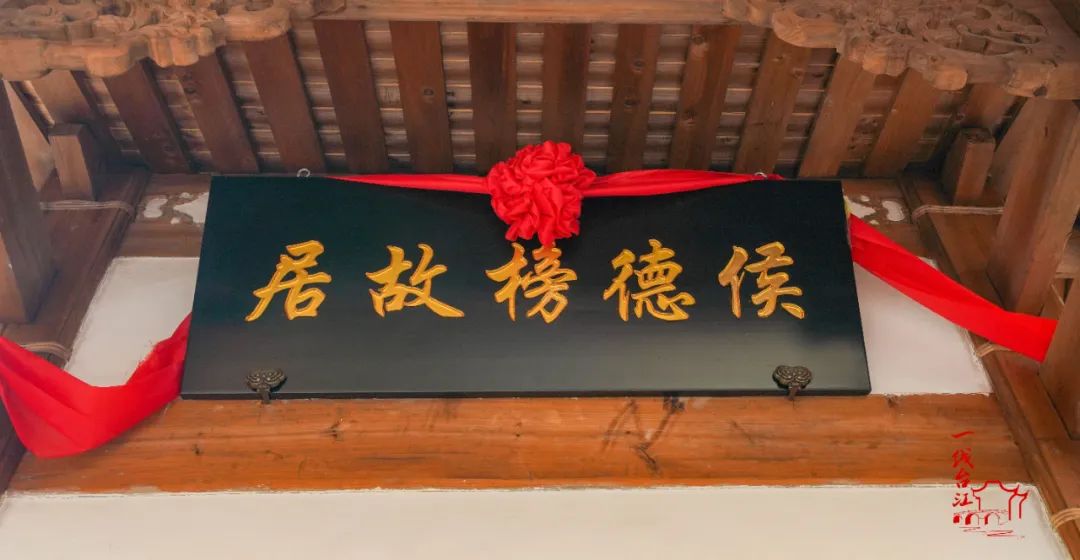 侯德榜故居
一线台江